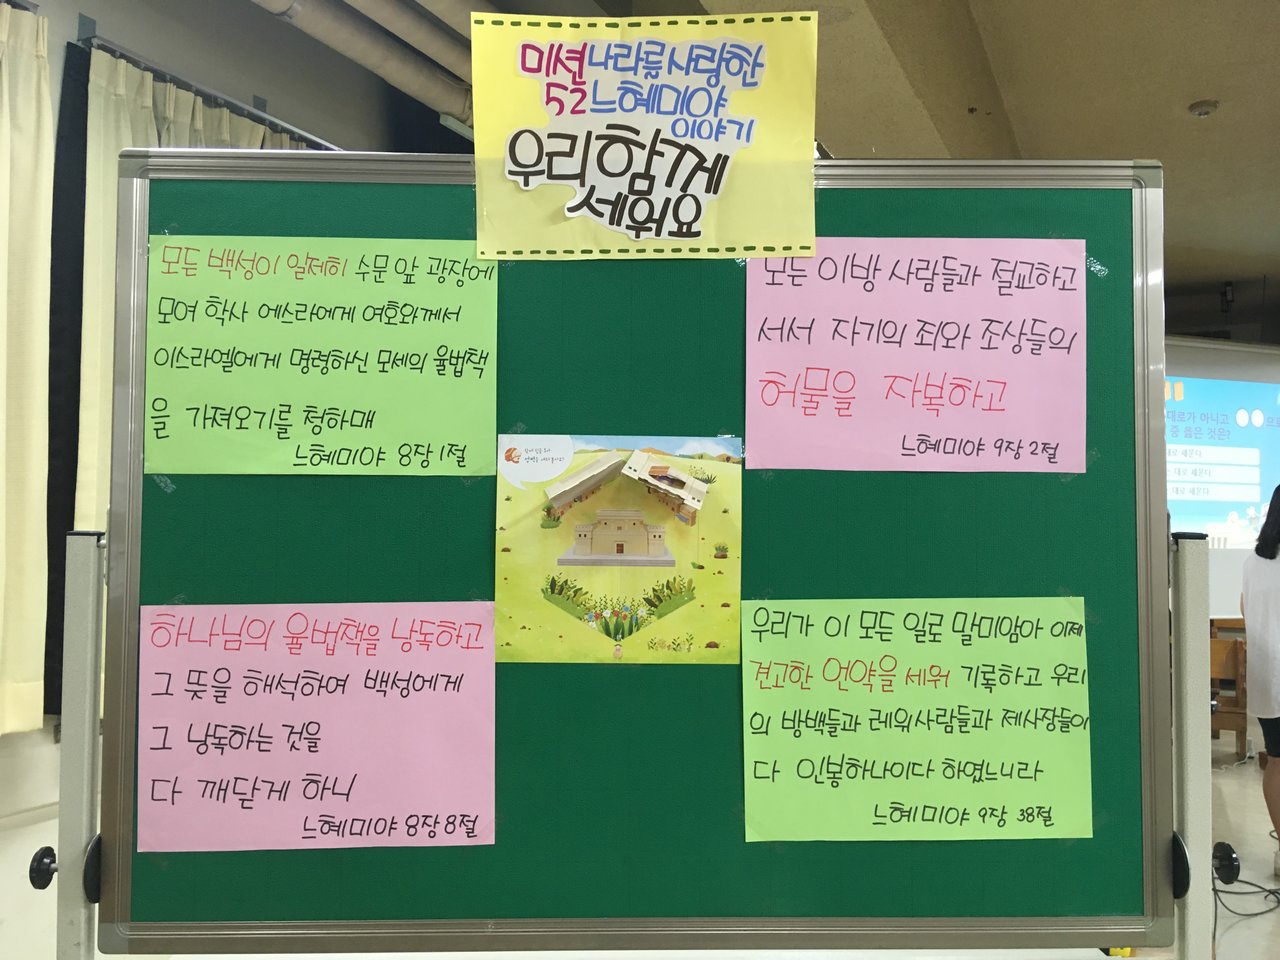 미션 나라를 사랑한
52 느헤미야
이야기
우리 함께
세워요
모든 백성이 일제히 수문 앞 광장에
모여 학사 에스라에게 여호와께서
이스라엘에게 명령하신 모세의 율법책
을 가져오기를 청하매
느헤미야 8장 1절
모든 이방 사람들과 절교하고
서서 자기의 죄와 조상들의
허물을 자복하고
느헤미야 9장 2절
하나님의 율법책을 낭독하고
그 뜻을 해석하여 백성에게
그 낭독하는 것을
다 깨닫게 하니
느헤미야 8장 8절
우리가 이 모든 일로 말미암아 이제
견고한 언약을 세워 기록하고 우리
의 방백들과 레위사람들과 제사장들이
다 인봉하나이다 하였느니라
느헤미야 9장 38절
대로가 아니고
중 옳은 것은?
대로 세운다
대로 세운다
대로 세운다